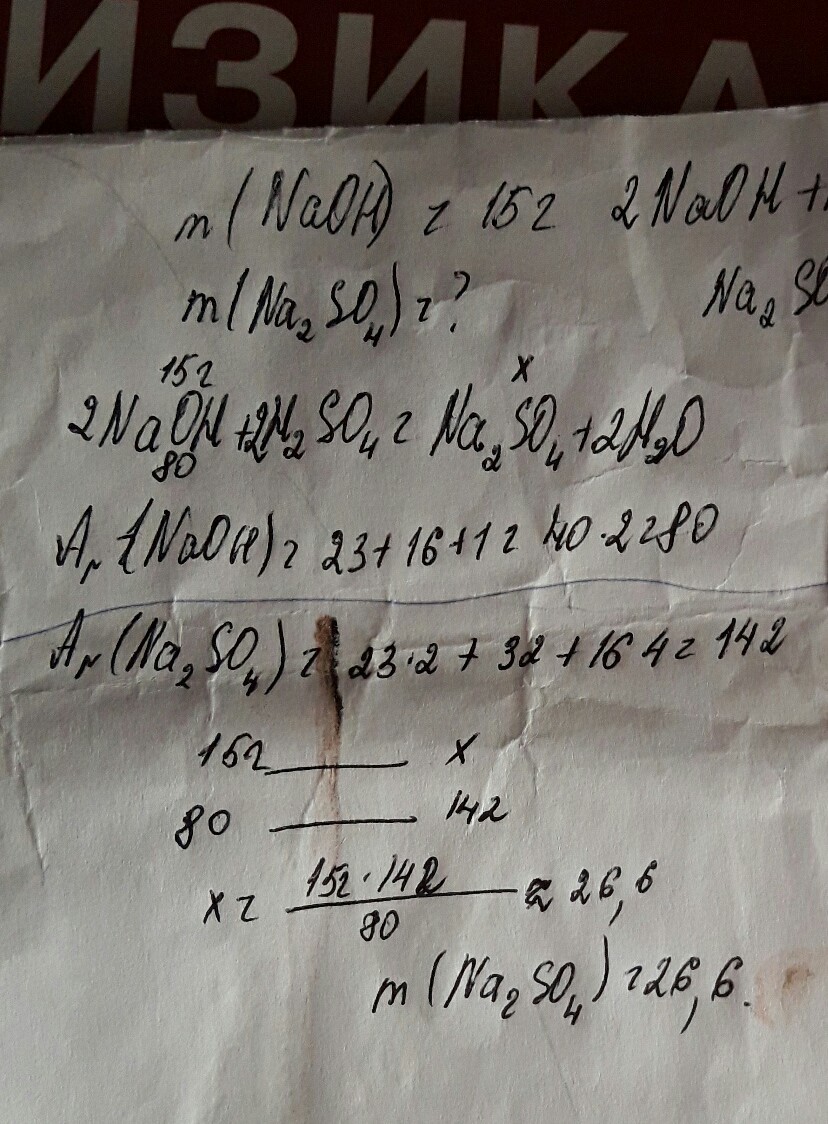 ИЗИКА
m(NaOH) = 15г 2NaOH +
m(Na₂SO₄) = ? Na₂SO
15г x
2NaOH+2H₂SO₄ = Na₂SO₄+2H₂O
80
Ar (NaOH) = 23+16+1 = 40·2=80
Ar(Na₂SO₄) = 23·2 + 32 + 16 4 = 142
15г ——— x
80 ——— 142
x = 15г·142 / 80 ≈ 26,6
m(Na₂SO₄) = 26,6.